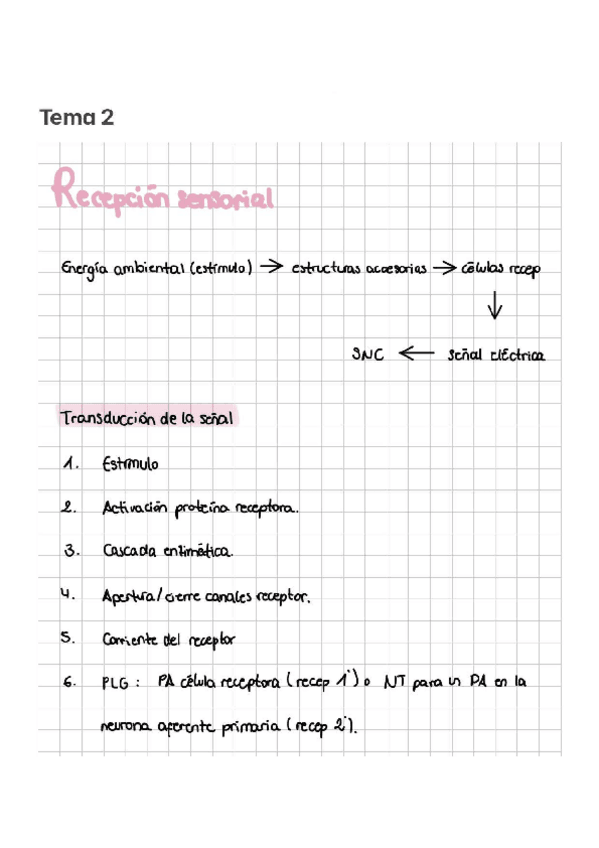 Tema 2
Recepción sensorial
Energía ambiental (estímulo) → estructuras accesorias → células recep
↓
SNC ← señal eléctrica
Transducción de la señal
1. Estímulo
2. Activación proteína receptora.
3. Cascada enzimática.
4. Apertura/cierre canales receptor.
5. Corriente del receptor
6. PLG: PA célula receptora (recep 1º) o NT para un PA en la
neurona aferente primaria (recep 2º).